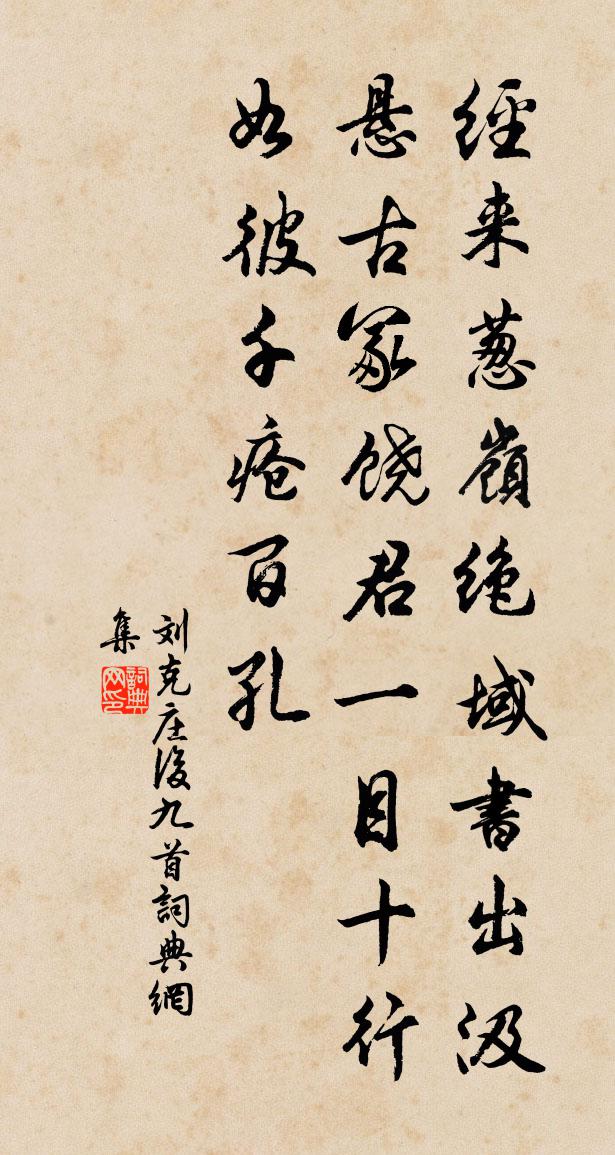 經来葱嶺绝域書出汲
悬古冢饶君一目十行
如彼千疮百孔
刘克庄後九首詞典網
集
詞典
网印